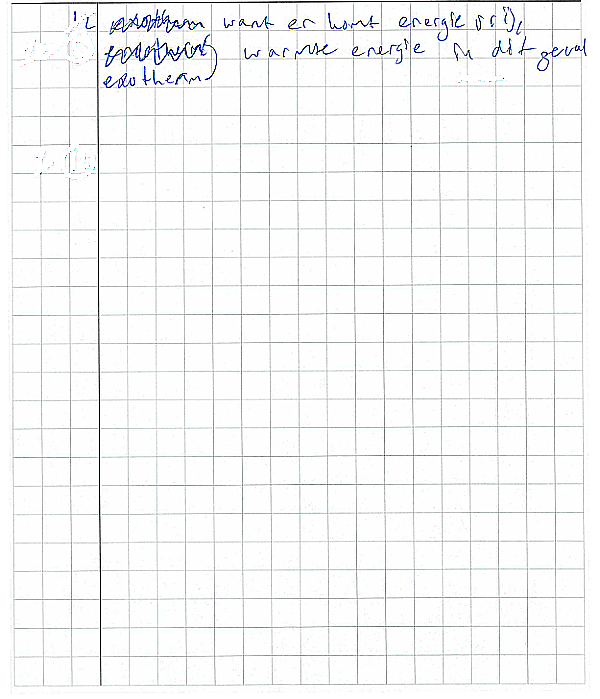 12 exotherm want er komt energie vrij,
endotherm) warmte energie in dit geval
exotherm